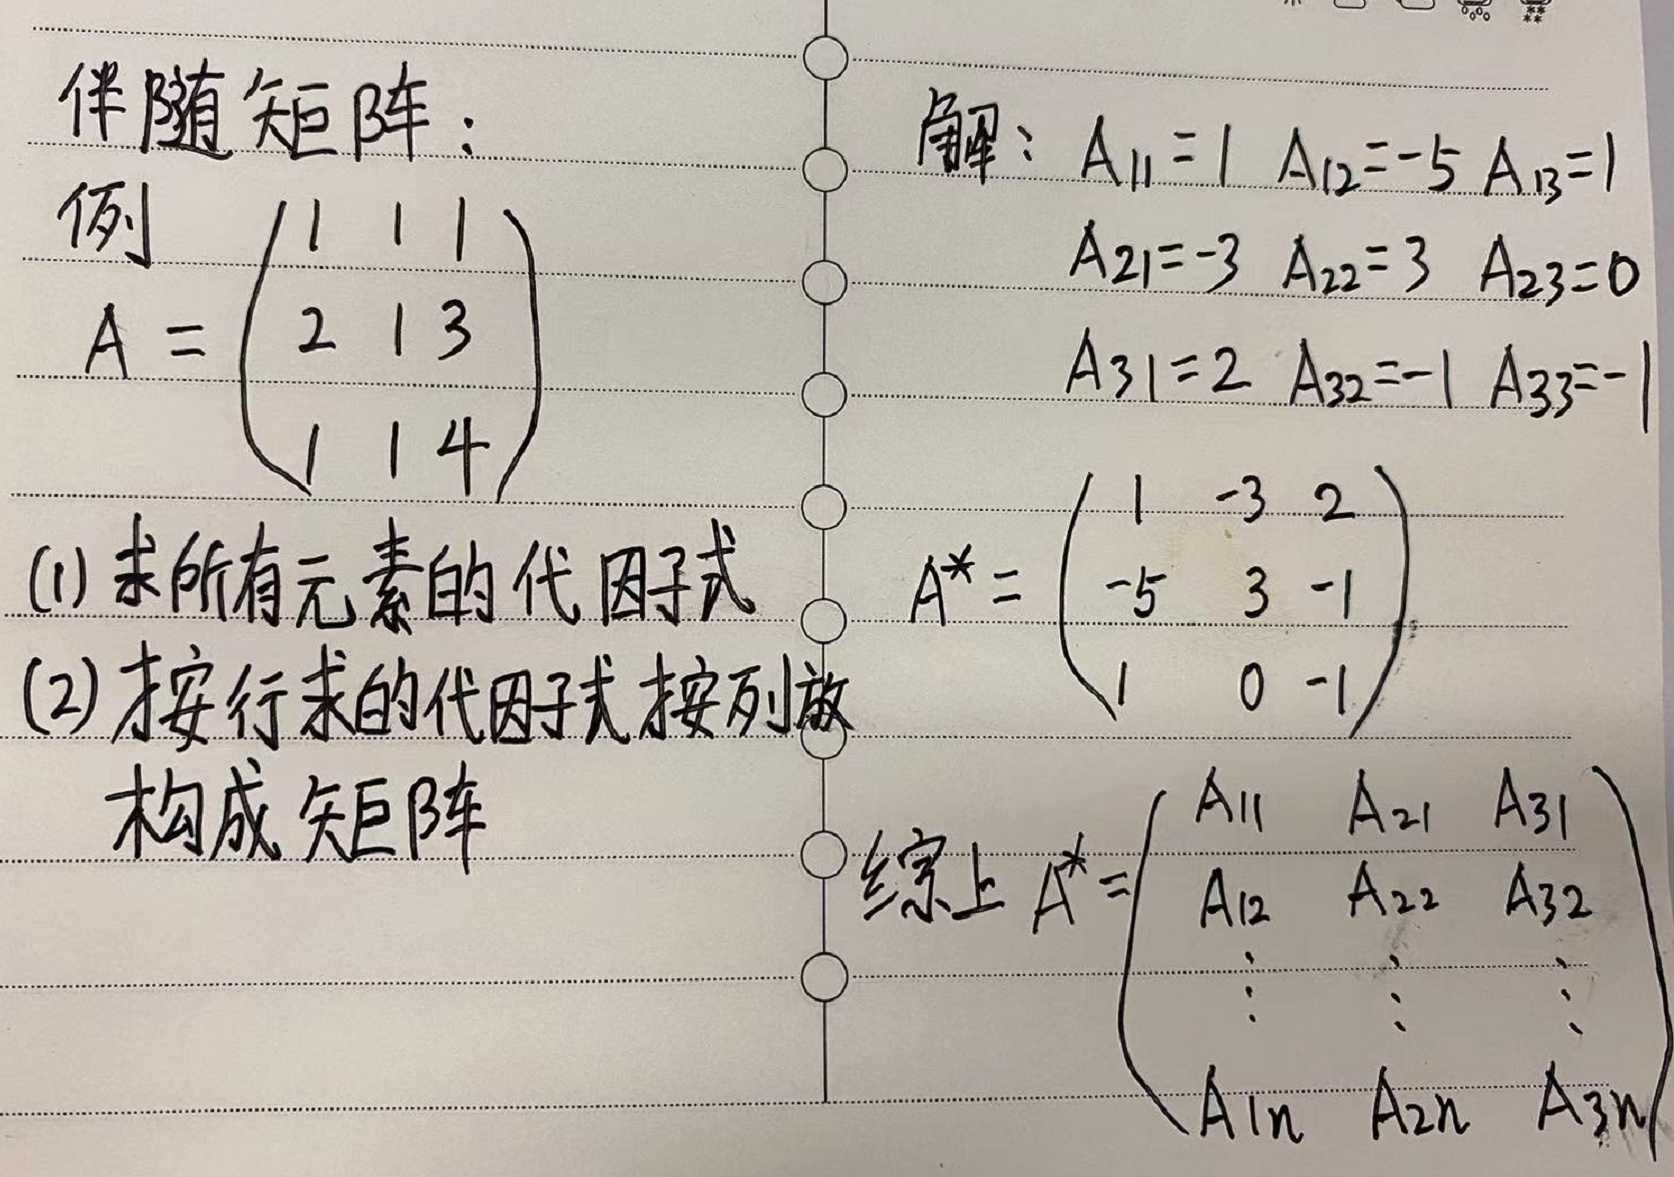 伴随矩阵：
例
A = ( 1 1 1
2 1 3
1 1 4 )
(1) 求所有元素的代因子式
(2) 按行求的代因子式按列放
构成矩阵
解： A11=1 A12=-5 A13=1
A21=-3 A22=3 A23=0
A31=2 A32=-1 A33=-1
A* = ( 1 -3 2
-5 3 -1
1 0 -1 )
综上 A* = ( A11 A21 A31
A12 A22 A32
⋮ ⋮ ⋮
A1n A2n A3n )